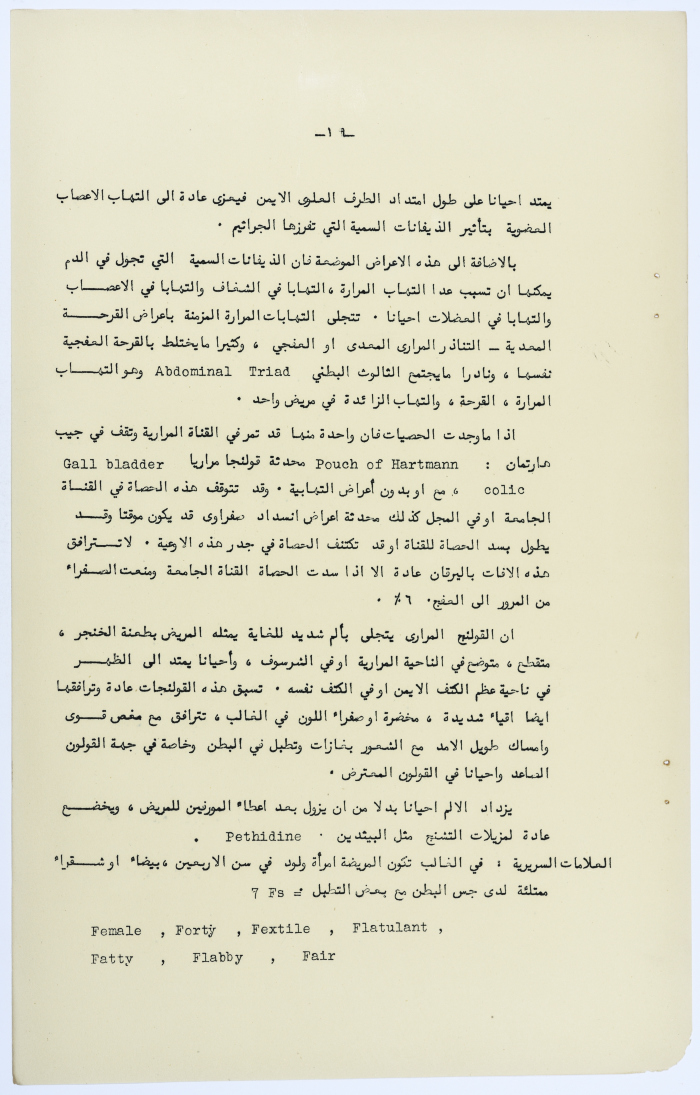 ـ١٩ـ
يمتد احيانا على طول امتداد الطرف العلوى الايمن فيعزى عادة الى التهاب الاعصاب
العضوية بتأثير الذيفانات السمية التي تفرزها الجراثيم .
بالاضافة الى هذه الاعراض الموضعة فان الذيفانات السمية التي تجول في الدم
يمكنها ان تسبب عدا التهاب المرارة ، التهابا في الشغاف والتهابا في الاعصاب
والتهابا في العضلات احيانا . تتجلى التهابات المرارة المزمنة باعراض القرحة
المعدية ـ التناذر المرارى المعدى او العفجي ، وكثيرا مايختلط بالقرحة العفجية
نفسها ، ونادرا مايجتمع الثالوث البطني Abdominal Triad وهو التهاب
المرارة ، القرحة ، والتهاب الزائدة في مريض واحد .
اذا ماوجدت الحصيات فان واحدة منها قد تمر في القناة المرارية وتقف في جيب
هارتمان : Pouch of Hartmann محدثة قولنجا مراريا Gall bladder
colic ، مع او بدون أعراض التهابية . وقد تتوقف هذه الحصاة في القناة
الجامعة او في المجل كذلك محدثة اعراض انسداد صفراوى قد يكون موقتا وقد
يطول بسد الحصاة للقناة او قد تكتنف الحصاة في جدر هذه الاوعية . لاتترافق
هذه الافات باليرقان عادة الا اذا سدت الحصاة القناة الجامعة ومنعت الصفراء
من المرور الى العفج. ٦٪ .
ان القولنج المرارى يتجلى بألم شديد للغاية يمثله المريض بطعنة الخنجر ،
متقطع ، متوضع في الناحية المرارية او في الشرسوف ، وأحيانا يمتد الى الظهر
في ناحية عظم الكتف الايمن او في الكتف نفسه . تسبق هذه القولنجات عادة وترافقها
ايضا اقياء شديدة ، مخضرة او صفراء اللون في الغالب ، تترافق مع مغص قوى
وامساك طويل الامد مع الشعور بغازات وتطبل في البطن وخاصة في جهة القولون
الصاعد واحيانا في القولون المعترض .
يزداد الالم احيانا بدلا من ان يزول بعد اعطاء المورفين للمريض ، ويخضع
عادة لمزيلات التشنج مثل البيئدين . Pethidine .
العلامات السريرية : في الغالب تكون المريضة امرأة ولود في سن الاربعين ، بيضاء او شقراء
ممتلئة لدى جس البطن مع بعض التطبل . = 7 Fs
Female , Forty , Fextile , Flatulant ,
Fatty , Flabby , Fair